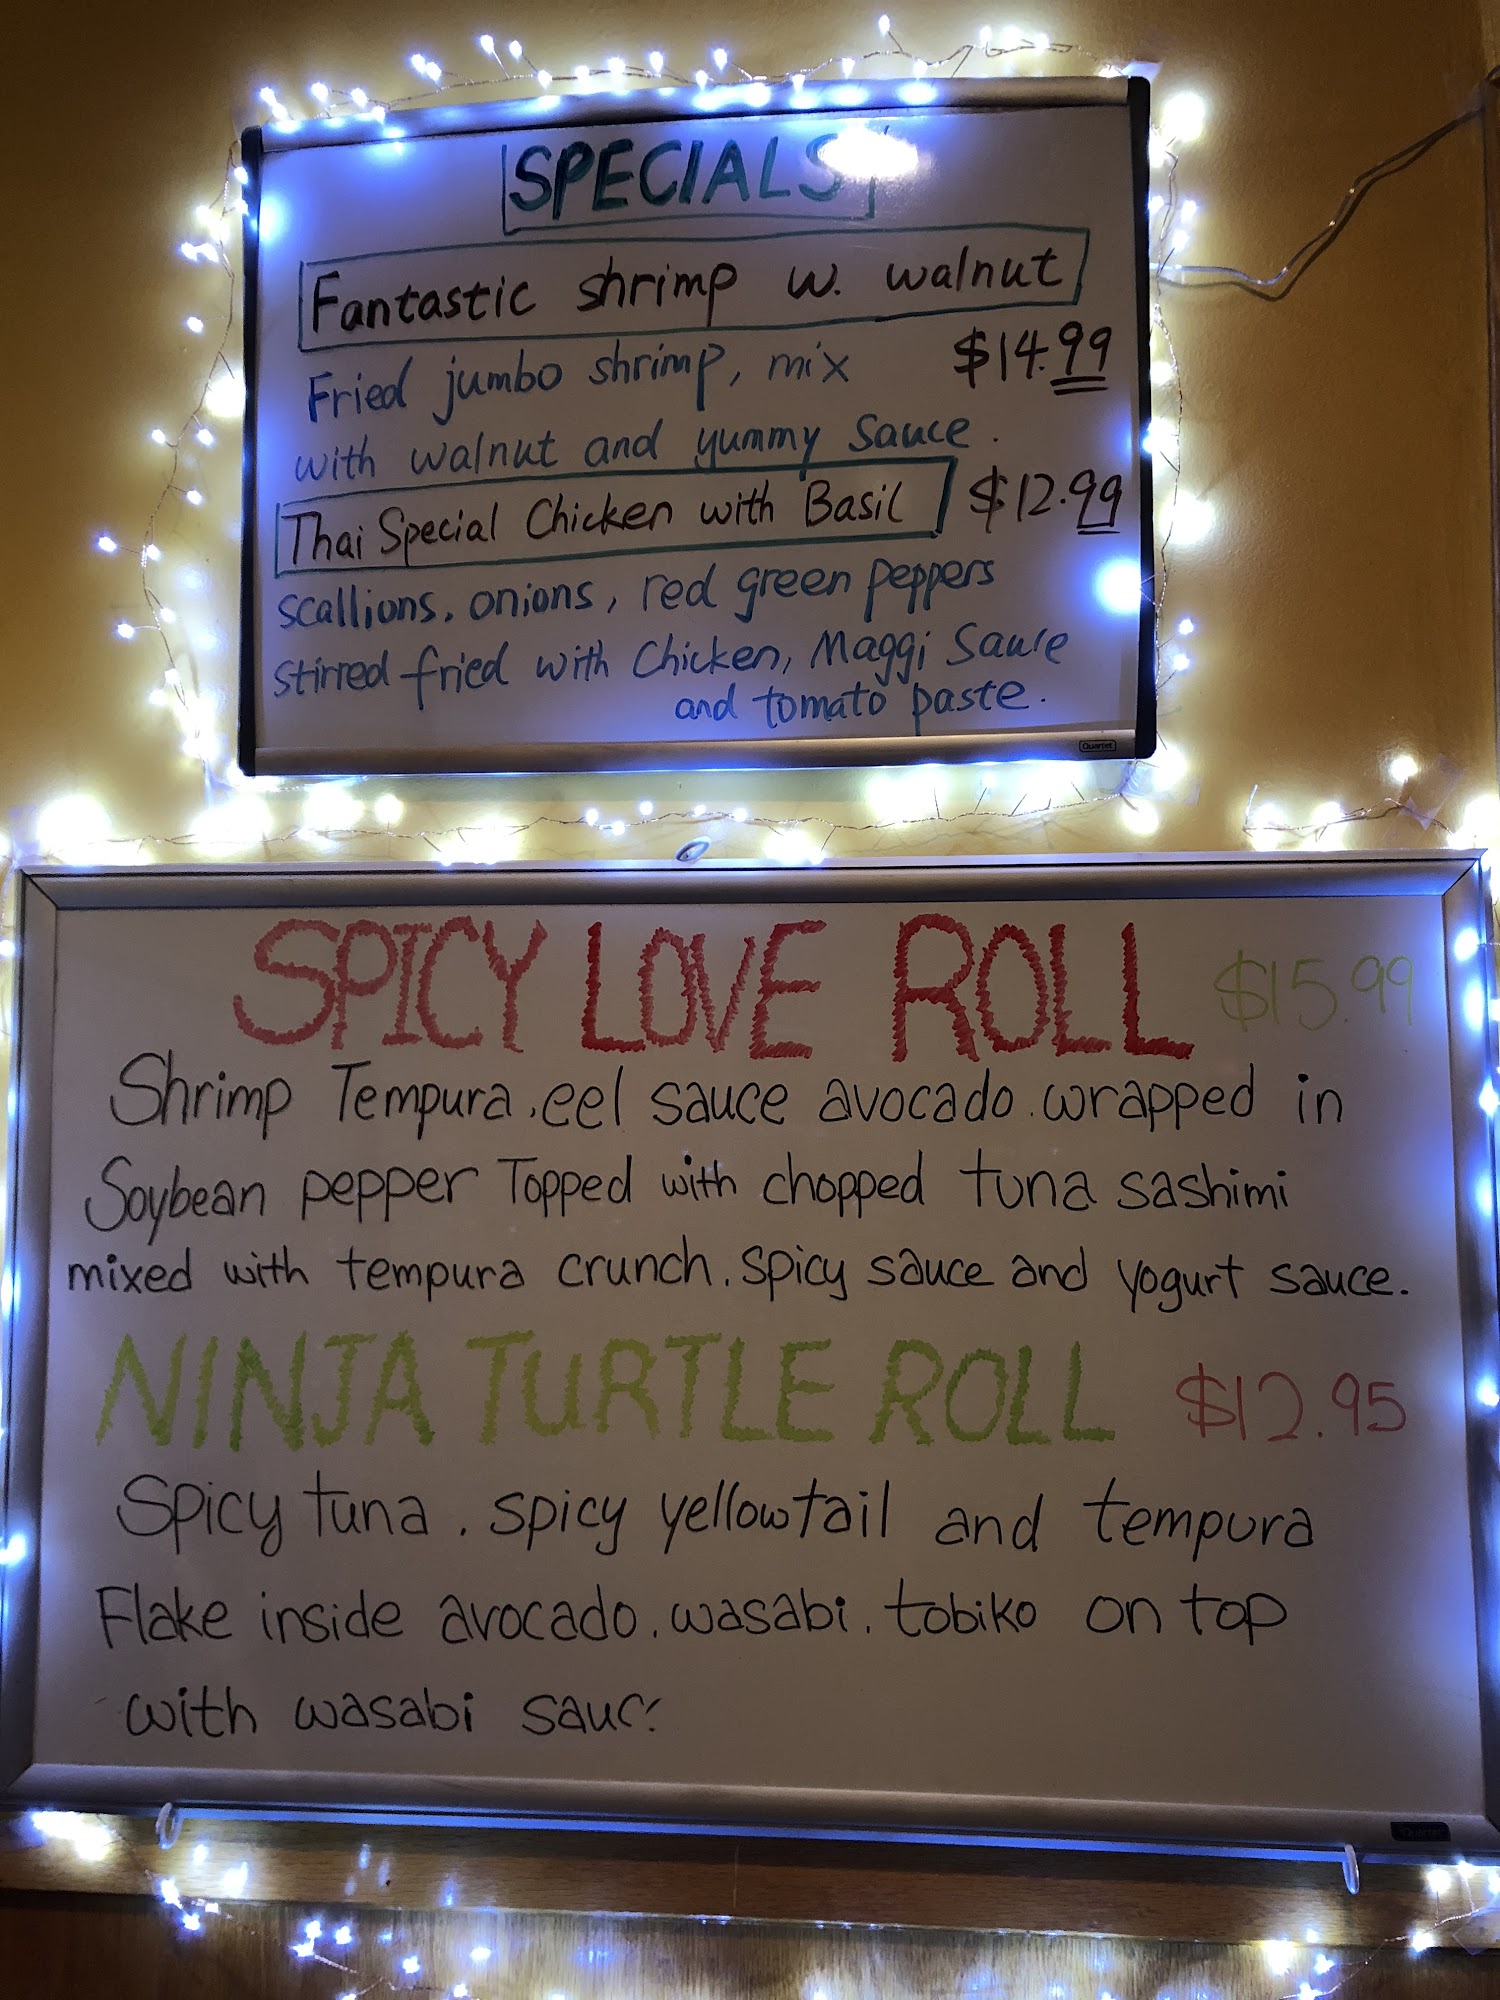 SPECIALS
Fantastic shrimp w. walnut
Fried jumbo shrimp, mix $14.99
with walnut and yummy sauce.
Thai Special Chicken with Basil $12.99
scallions, onions, red green peppers
stirred fried with Chicken, Maggi Sauce
and tomato paste.
Quartet
SPICY LOVE ROLL $15.99
Shrimp Tempura . eel sauce avocado . wrapped in
Soybean pepper Topped with chopped tuna sashimi
mixed with tempura crunch . spicy sauce and yogurt sauce.
NINJA TURTLE ROLL $12.95
Spicy tuna . spicy yellowtail and tempura
Flake inside avocado . wasabi . tobiko on top
with wasabi sauc
Quartet